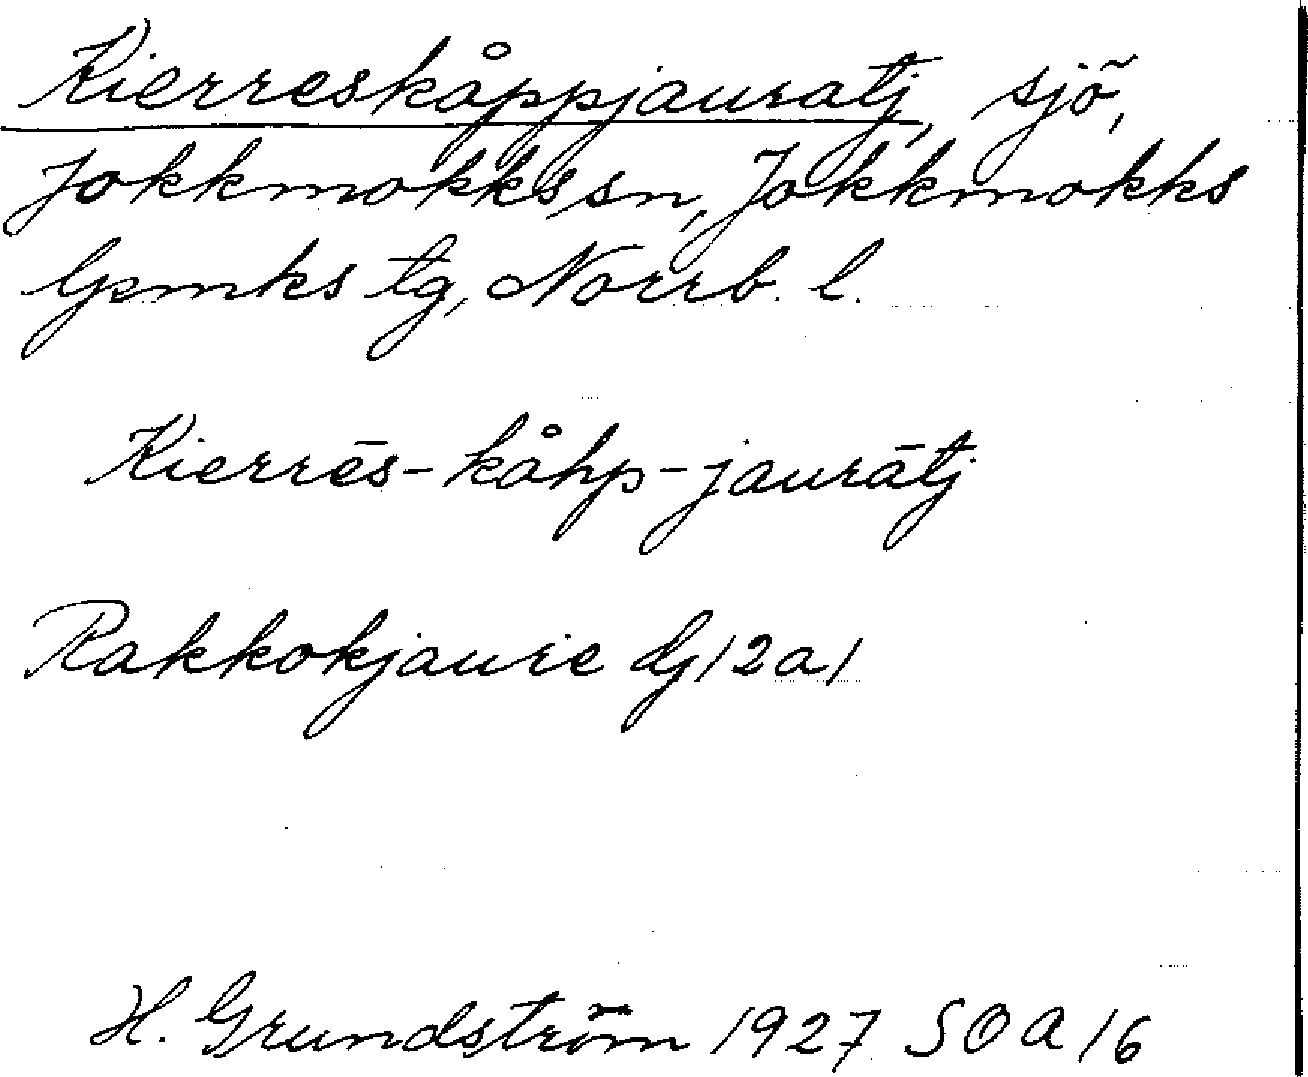 Kierreskåppjauratj, sjö,
Jokkmokks sn, Jokkmokks
lpmks tg, Norrb. l.
Kierrēs-kåhp-jaurātj
Rakkokjaure dj 12a1
H. Grundström 1927 SOA 16